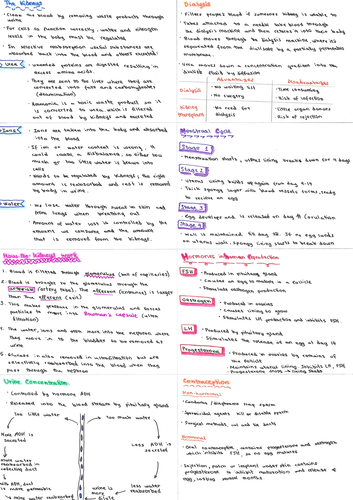 The Kidneys
- Clean the blood by removing waste products through urine
- For cells to function correctly, water and nitrogen waste in the body must be regulated
- In selective reabsorption useful substances are absorbed back into the blood and others excreted
Urea
- Unneeded proteins are digested resulting in excess amino acids
- They are sent to the liver where they are converted into fats and carbohydrates (deamination)
- Ammonia is a toxic waste product so it is converted to urea, which is filtered out of blood by kidneys and excreted
Ions
- Ions are taken into the body and absorbed into the blood
- If ion or water content is wrong, it could cause a disbalance, so either too much or too little water is drawn into cells
- Needs to be regulated by kidneys, the right amount is reabsorbed and rest is removed by body in urine
Water
- We lose water through sweat in skin and from lungs when breathing out
- Amount of water lost is controlled by the amount we consume and the amount that is removed from the kidneys.
How the kidneys work
1. Blood is filtered through glomerulus (knot of capillaries)
2. Blood is brought to the glomerulus through the afferent
3. This makes pressure in the glomerulus and forces particles to move into Bowman's capsule (ultra filtration)
4. The water, ions and urea move into the nephron where they move in to the bladder to be removed as urine
5. Glucose is also removed in ultrafiltration but are selectively reabsorbed into the blood when they pass through the nephron
Urine Concentration
- Controlled by hormone ADH
- Released into the blood stream by pituitary gland
Too little water
Too much water
More ADH is secreted
Less ADH is secreted
more water reabsorbed in collecting duct
less water reabsorbed
urine is more dilute
Dialysis
- Filters proper blood if someones kidney is unable to
- Tubes attached to a needle take blood through the dialysis machine and then returns it into their body
- Blood moves through in dialysis machine, where its separated from the dialysate by a partially permeable membrane
- Urea moves down a concentration gradient into the dialysis fluid by diffusion
Advantages
Disadvantages
Dialysis
- No waiting list
- No surgery
- Time consuming
- Risk of infection
Kidney transplant
- No need for dialysis
- Risk of rejection
Menstrual Cycle
Stage 1
- Menstruation starts, uterus lining breaks down for 4 days
Stage 2
- Uterus lining builds up again (day 4-14)
- Thick spongy layer with blood vessels forms, ready to receive an egg
Stage 3
- Egg develops and is released on day 14 (ovulation)
Stage 4
- Wall is maintained till day 28. If no egg lands on uterus wall, spongy lining starts to break down
Hormones in Human Reproduction
FSH
- Produced in pituitary gland
- Causes an egg to mature in a follicle
- Stimulate oestrogen production
Oestrogen
- Produced in ovaries
- Causes lining to grow
- Stimulates LH production and inhibits FSH
LH
- Produced by pituitary gland
- Stimulates the release of an egg at day 14
Progesterone
- Produced in ovaries by remains of the follicle
- Maintains uterus lining, inhibits LH, FSH
Contraception
Non-hormonal
- Condoms/diaphragms stop sperm
- Spermicidal agents kill or disable sperm
- Surgical methods
Hormonal
- Oral contraceptives contains progesterone and oestrogen which inhibits FSH, so no egg matures
- Injection, patch or implant under skin contains progesterone to inhibit maturation and release of egg, lasting several months